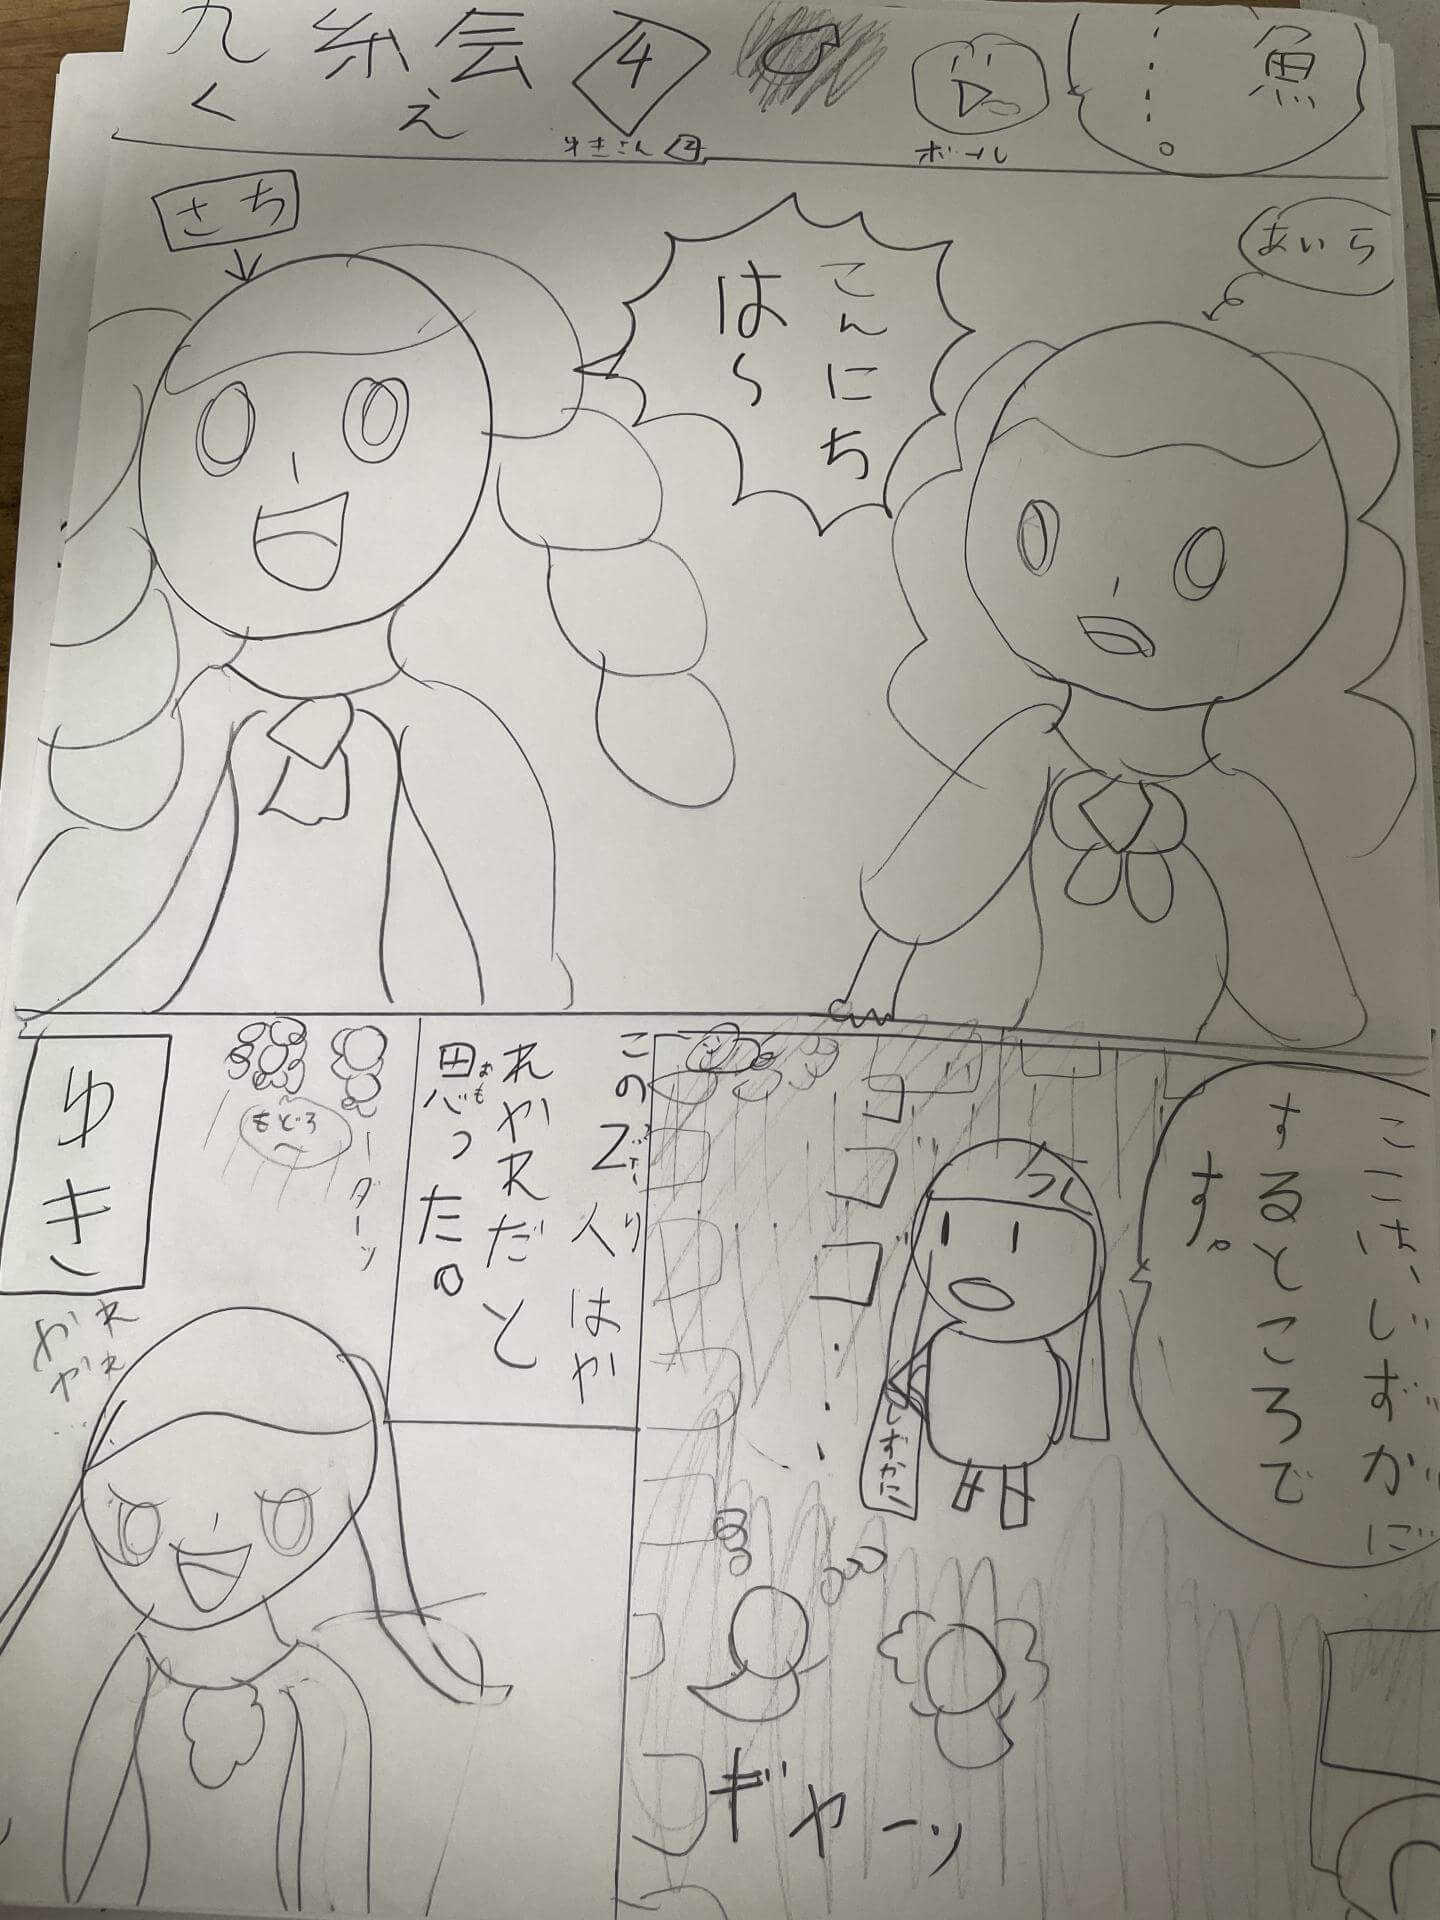 九 糸 会 4
く え
ゆきさん
ボール
魚
・・・・。
さち
こんにち
は〜
あいら
ここは、しずかに
するところで
す。
しずかに
ギャーッ
この2人はか
れかれだと
思った。
おも
もどろ
ーダーッ
ゆき